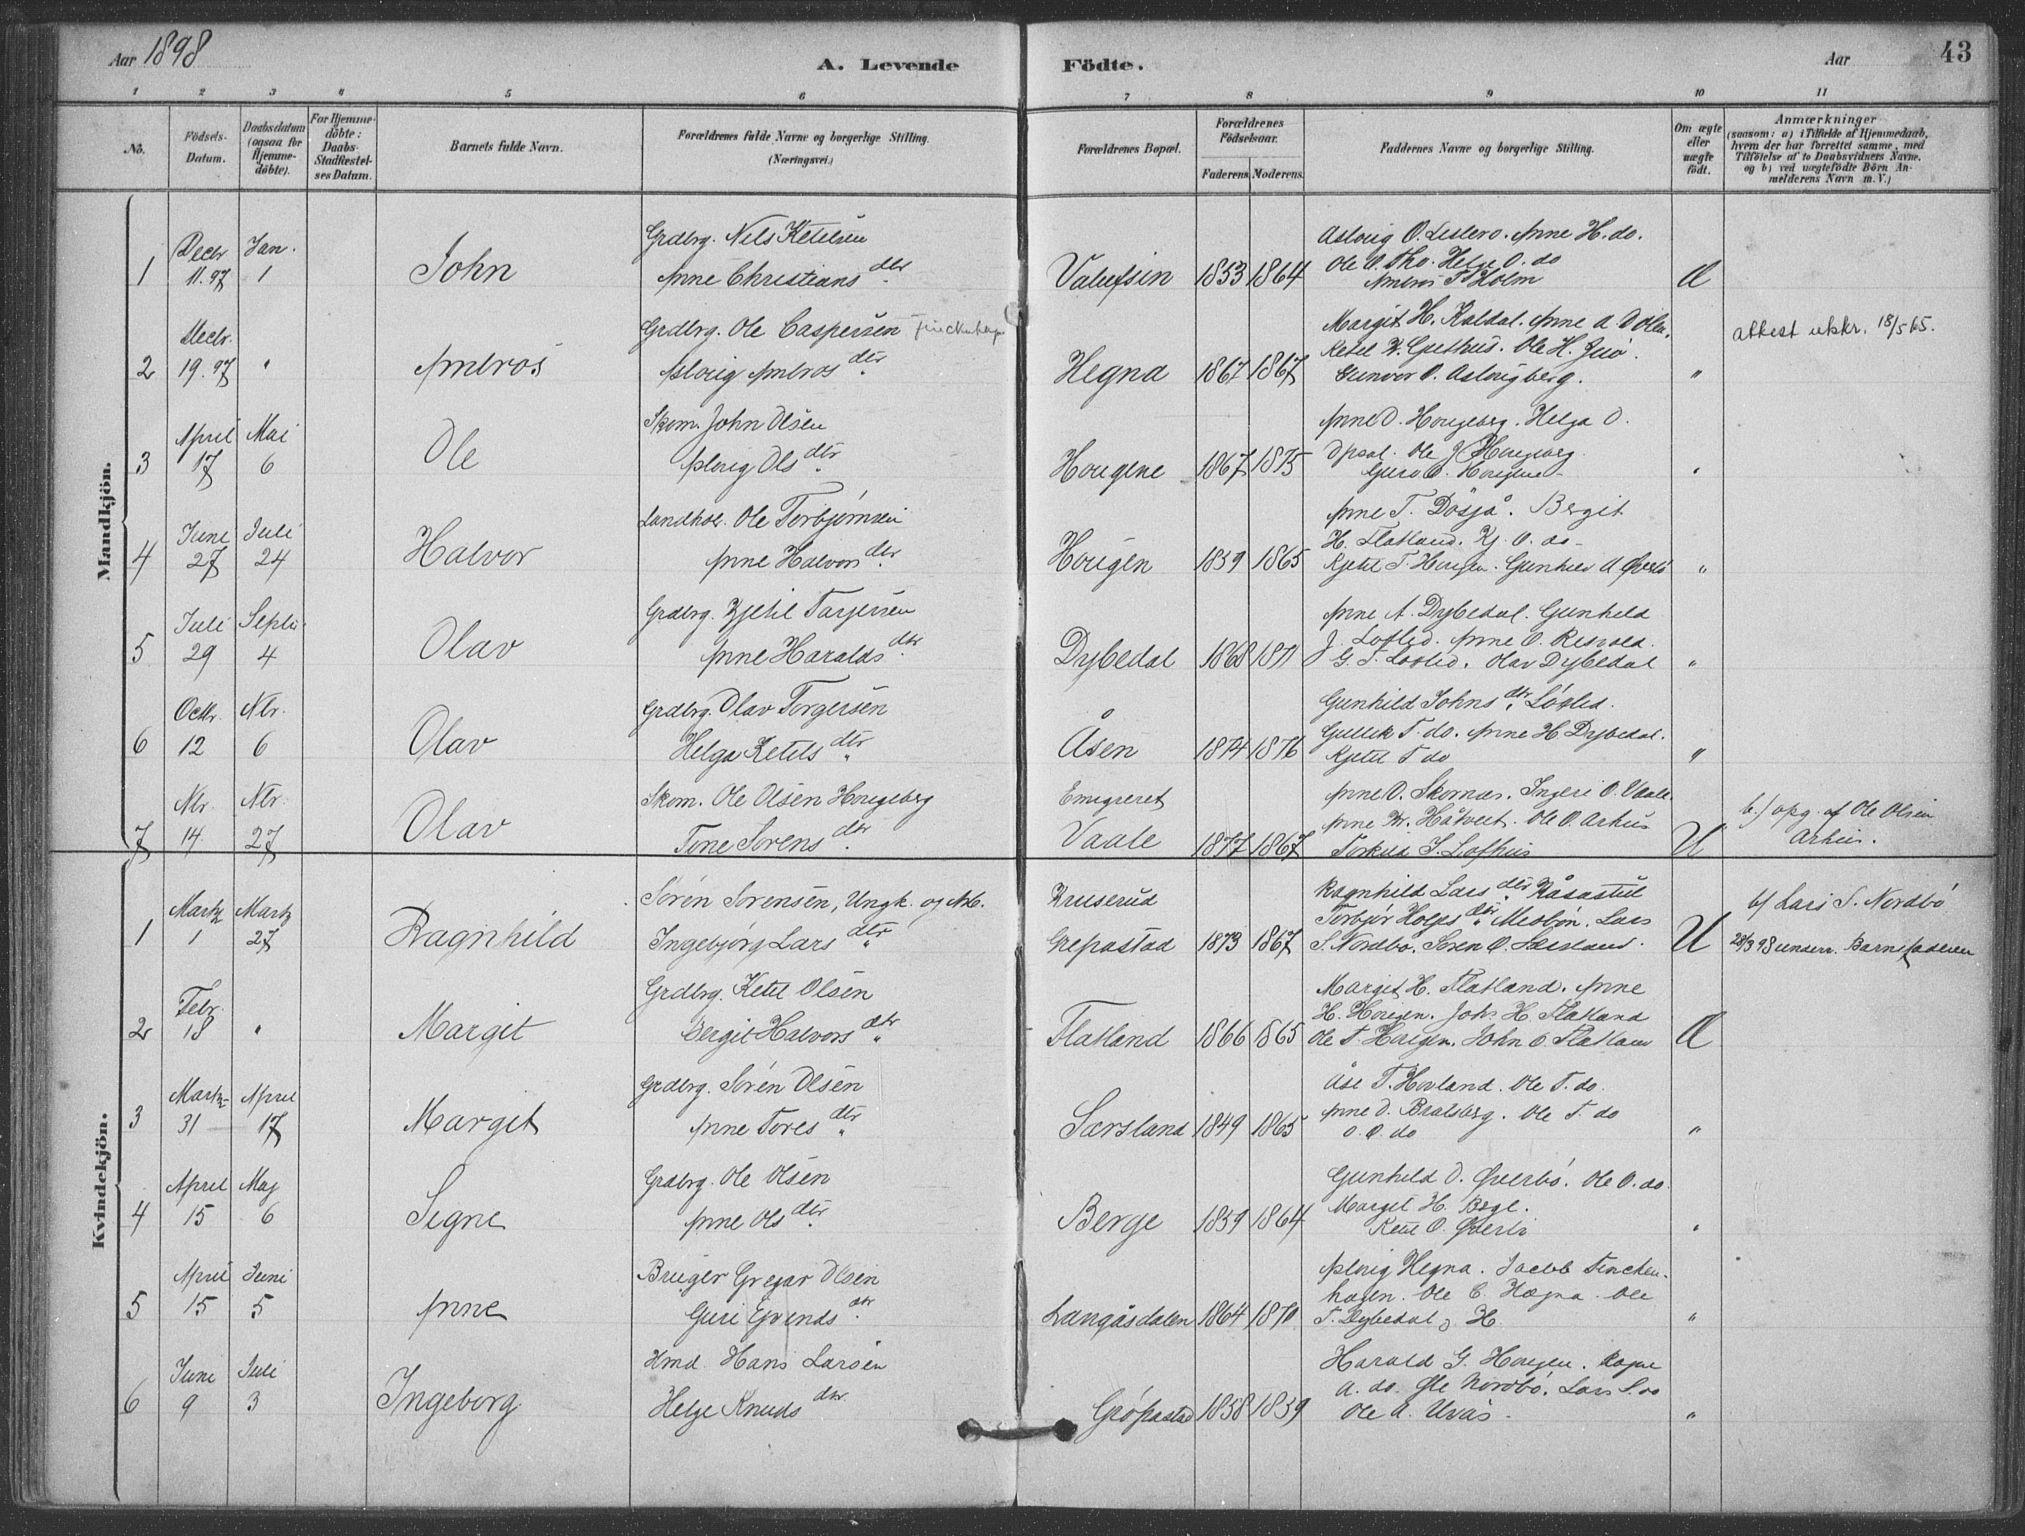 Aar 1898
A. Levende
Födte.
Aar
43
1 2 3 4 5 6 7 8 9 10 11
No.
Födsels-Datum.
Daabsdatum (ogsaa for Hjemmedöbte).
For Hjemmedöbte: Daabs-Stadfæstelses Datum.
Barnets fulde Navn.
Forældrenes fulde Navne og borgerlige Stilling.
(Næringsvei.)
Forældrenes Bopæl.
Forældrenes Födselsaar.
Faderens. Moderens.
Faddernes Navne og borgerlige Stilling.
Om ægte eller uægte födt.
Anmærkninger
(saasom: a) i Tilfælde af Hjemmedaab,
hvem der har forrettet samme, med
Tilföielse af to Daabsvidners Navne.
og b) ved uægtefödte Börn Anmelderens Navn m. V.)
Mandkjön.
1 Decbr 11.97 Jan. 1 John
Grdbrg. Nils Ketilsen
Anne Christiansdtr
1853 1864
Æ
2 Decbr. 19.97 " Ambros
Grdbrg. Ole Caspersen
Aslaug Ambrosdtr
Hegna 1867 1867
Margit H. Kaldal. Anne
Gunvor O.
"
attest utskr. 18/5 65.
3 April 17 Mai 6 Ole
Skom. John Olsen
Aslaug Olsdtr
Hougene 1867 1875
Anne O. Hougeberg. Helga O.
Opsal. Ole J. Hougeberg.
Guro O. Hougene
"
4 Juni 27 Juli 24 Halvor
Landhdl. Ole Torbjørnsen
Anne Halvorsdtr
Hougen 1859 1865
Anne T. Dösjå. Bergit
H. Flatland. Kj. O. do
Kjetil T. Hougen. Gunhild A
"
5 Juli 29 Septbr. 4 Olav
Grdbrg. Kjetil Tarjersen
Anne Haraldsdtr
Dybedal 1868 1871
Anne A. Dybedal. Gunhild
J. Løslid. Anne O.
G. T. Løslid. Olav Dybedal
"
6 Octbr. 12 Nbr. 6 Olav
Grdbrg. Olav Torgersen
Helga Ketilsdtr
Åsen 1874 1876
Gunhild Johnsdtr Løslid.
Gullik T. do. Anne H Dybedal.
Kjetil T do
"
7 Nbr. 14 Nbr. 27 Olav
Skom. Ole Olsen Hougeberg
Tone Sørensdtr
Emigreret
Vaale 1877 1867
Anne O. Skornæs. Ingeri O. Vaale.
Ole O. Århus
S. Lofhus
U
b.) opg. af Ole Olsen
Århus.
Kvindekjön.
1 Martz 1 Martz 27 Ragnhild
Sörén Sörensén, Ungk. og
Ingebjørg Larsdtr
Kruserud
Grepastad 1873 1867
Ragnhild Larsdtr Råsastul
Torbjør Holgsdtr Mosbøn. Lars
S. Nordbø. Søren O.
U
b/ Lars S. Nordbø
28/3 98 underr. Barnefaderen
2 Febr. 18 " Margit
Grdbrg. Ketil Olsén
Bergit Halvorsdtr
Flatland 1866 1865
Margit H. Flatland. Anne
H. Hougen. Joh. H. Flatland
Ole T. Hougen. John O. Flatland
Æ
3 Martz 31 April 17 Margit
Grdbrg. Sörén Olsén
Anne Toresdtr
Særsland 1849 1865
Åse T. Hovland. Ole T. do.
Anne O. Bralsberg. Ole T. do
O. O. do
"
4 April 15 Maj 6 Signe
Grdbrg. Ole Olsén
Anne Olsdtr
Berge 1859 1864
Gunhild O. Øverbö. Ole O. do.
Margit H.
"
5 April 15 Juni 5 Anne
Bruger Gregar Olsen
Guri Eivindsdtr
Langåsdalen 1864 1870
Aslaug Hegna. Jacob Finckenhagen. Ole C. Hægna. Ole
T. Dybedal
"
6 Juni 9 Juli 3 Ingeborg
Hmd. Hans Larsén
Helge Knudsdtr
Grøpastad 1858 1859
Harald G. Hougen.
A. do. Ole Nordbö. Lars S. do
Ole A. Uvås.
"